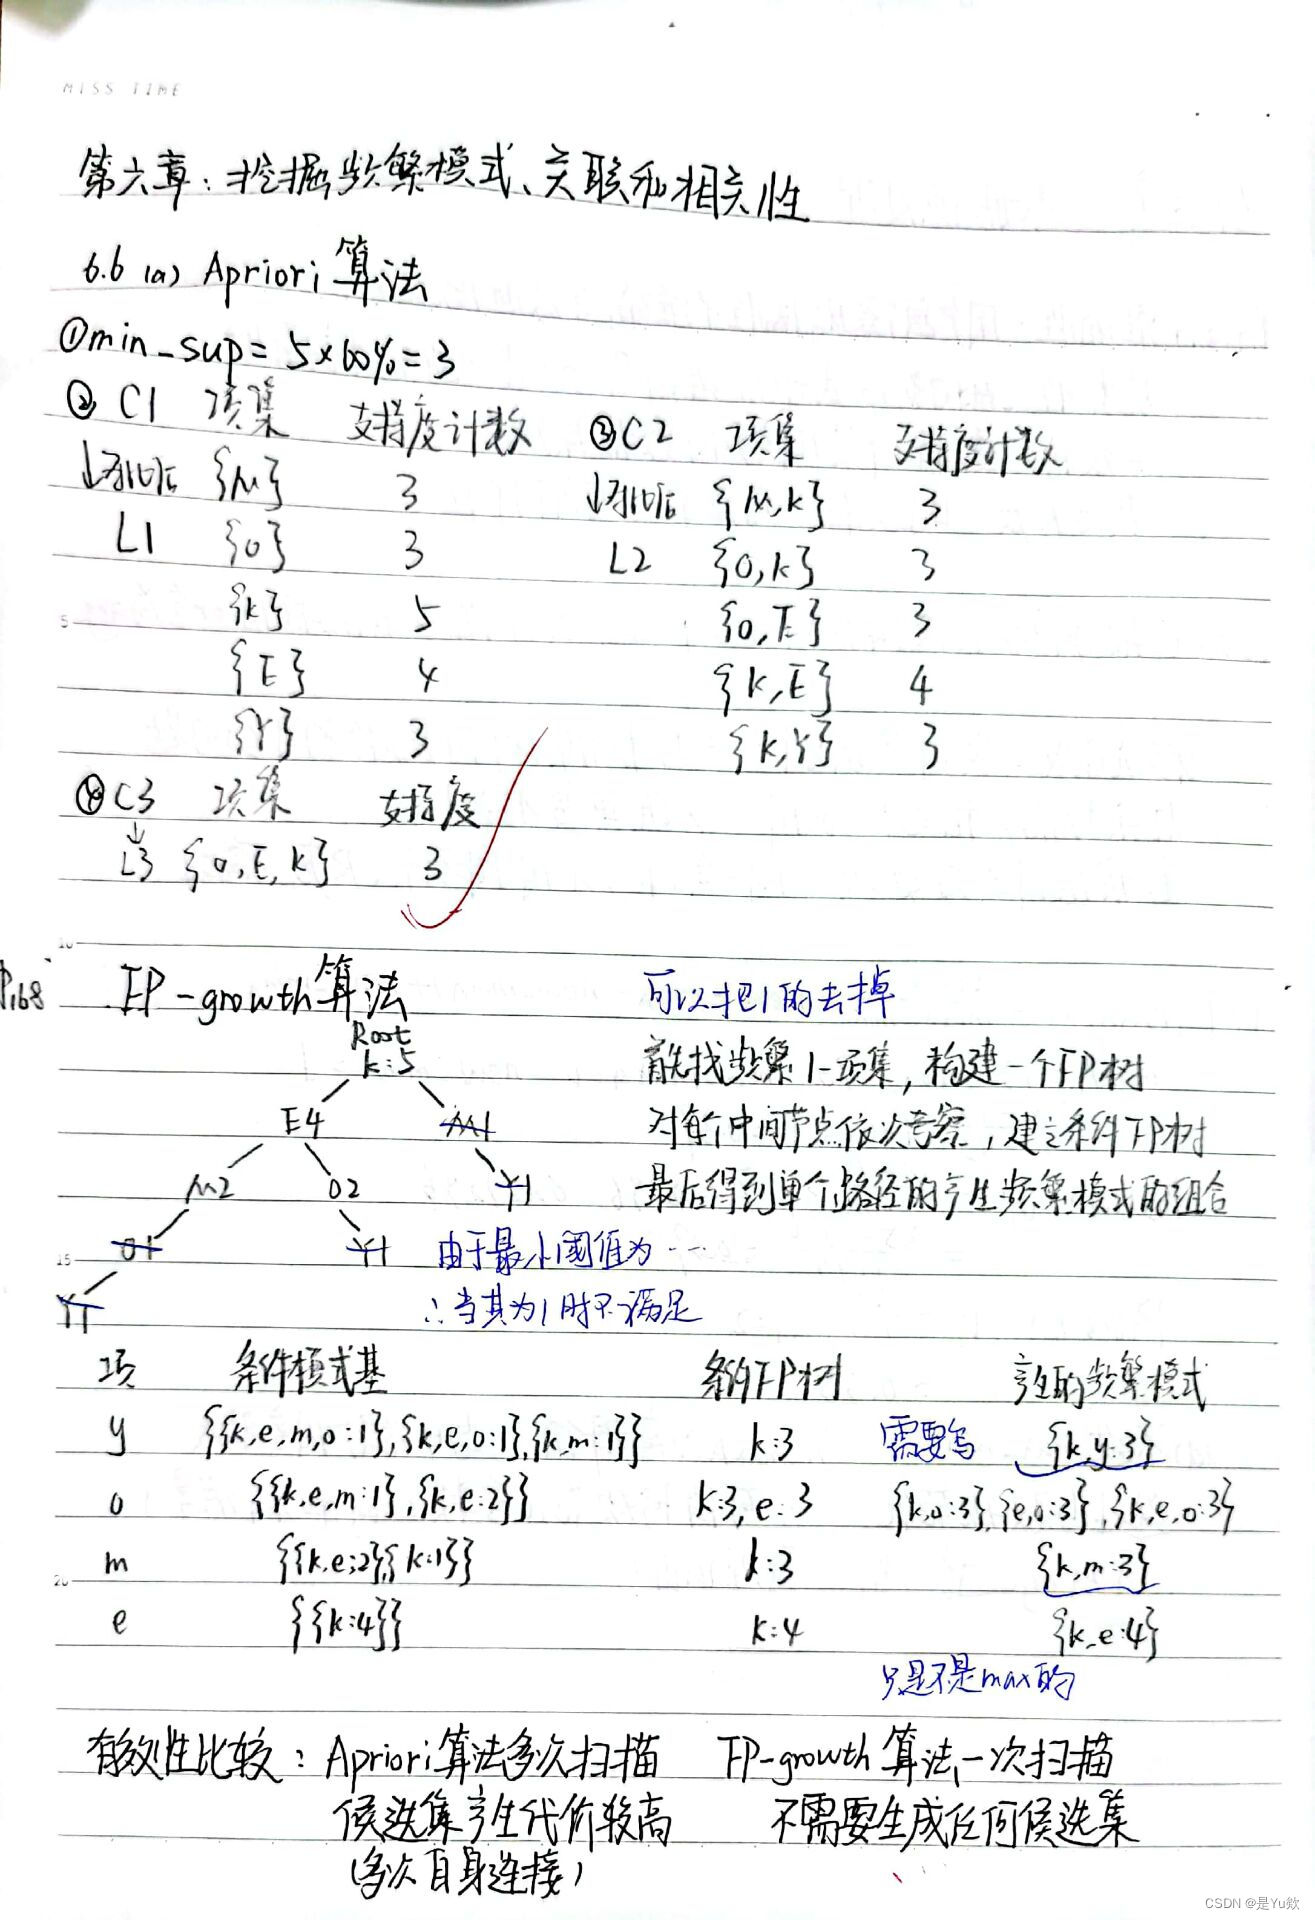 MISS TIME
第六章：挖掘频繁模式、关联和相关性
6.6 (a) Apriori算法
①min_sup= 5×60%=3
② C1 项集 支持度计数 ③C2 项集 支持度计数
↓ {M} 3 ↓ {M,K} 3
L1 {O} 3 L2 {O,K} 3
5 {K} 5 {O,E} 3
{E} 4 {K,E} 4
{Y} 3 {K,Y} 3
④C3 项集 支持度
↓
L3 {O,E,K} 3
10
P168 FP-growth算法 可以把1的去掉
Root
k:5 首先找频繁1-项集，构建一个FP树
E4 M1 对每个中间节点依次考察，建立条件FP树
M2 O2 Y1 最后得到单个路径的产生频繁模式的组合
15 O1 Y1 由于最小阈值为…
Y1 ∴当其为1时不满足
项 条件模式基 条件FP树 产生的频繁模式
y {{k,e,m,o:1},{k,e,o:1},{k,m:1}} k:3 需要写 {k,y:3}
o {{k,e,m:1},{k,e:2}} k:3, e:3 {k,o:3},{e,o:3},{k,e,o:3}
m {{k,e:2},{k:1}} k:3 {k,m:3}
20
e {{k:4}} k:4 {k,e:4}
只是不是max的
有效性比较：Apriori算法多次扫描 FP-growth算法一次扫描
候选集产生代价较高 不需要生成任何候选集
(多次自身连接)
CSDN @是Yu欸